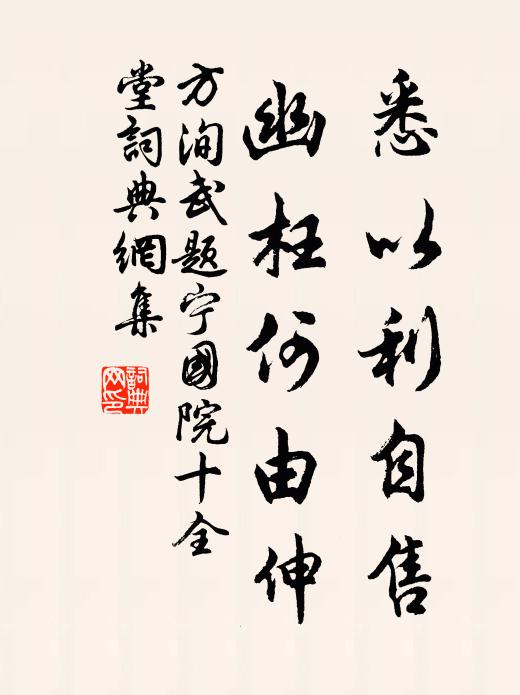 悉以利自售
幽枉何由伸
方洵武题宁國院十全
堂詞典網集
詞典
网印